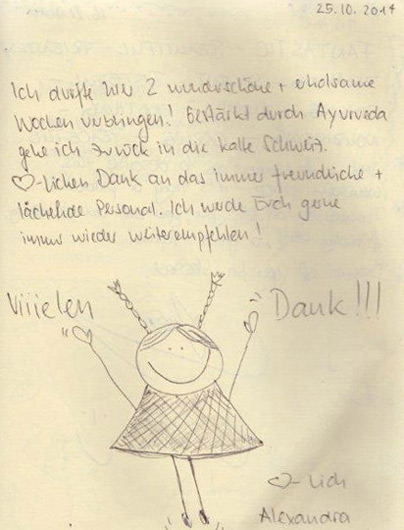 25.10.2014
Ich durfte hier 2 wunderschöne + erholsame
Wochen verbringen! Gestärkt durch Ayurveda
gehe ich zurück in die kalte Schweiz.
♡-lichen Dank an das immer freundliche +
lächelnde Personal. Ich werde Euch gerne
immer wieder weiterempfehlen!
Viiielen Dank!!!
♡-lich
Alexandra